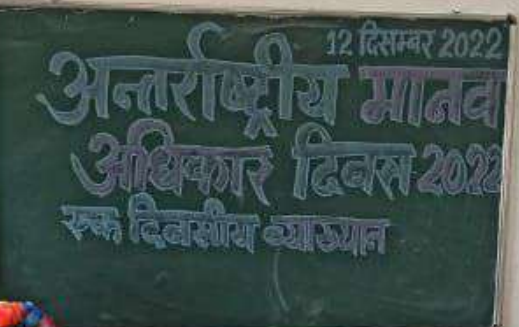 12 दिसम्बर 2022
अन्तर्राष्ट्रीय मानव
अधिकार दिवस 2022
एक दिवसीय व्याख्यान